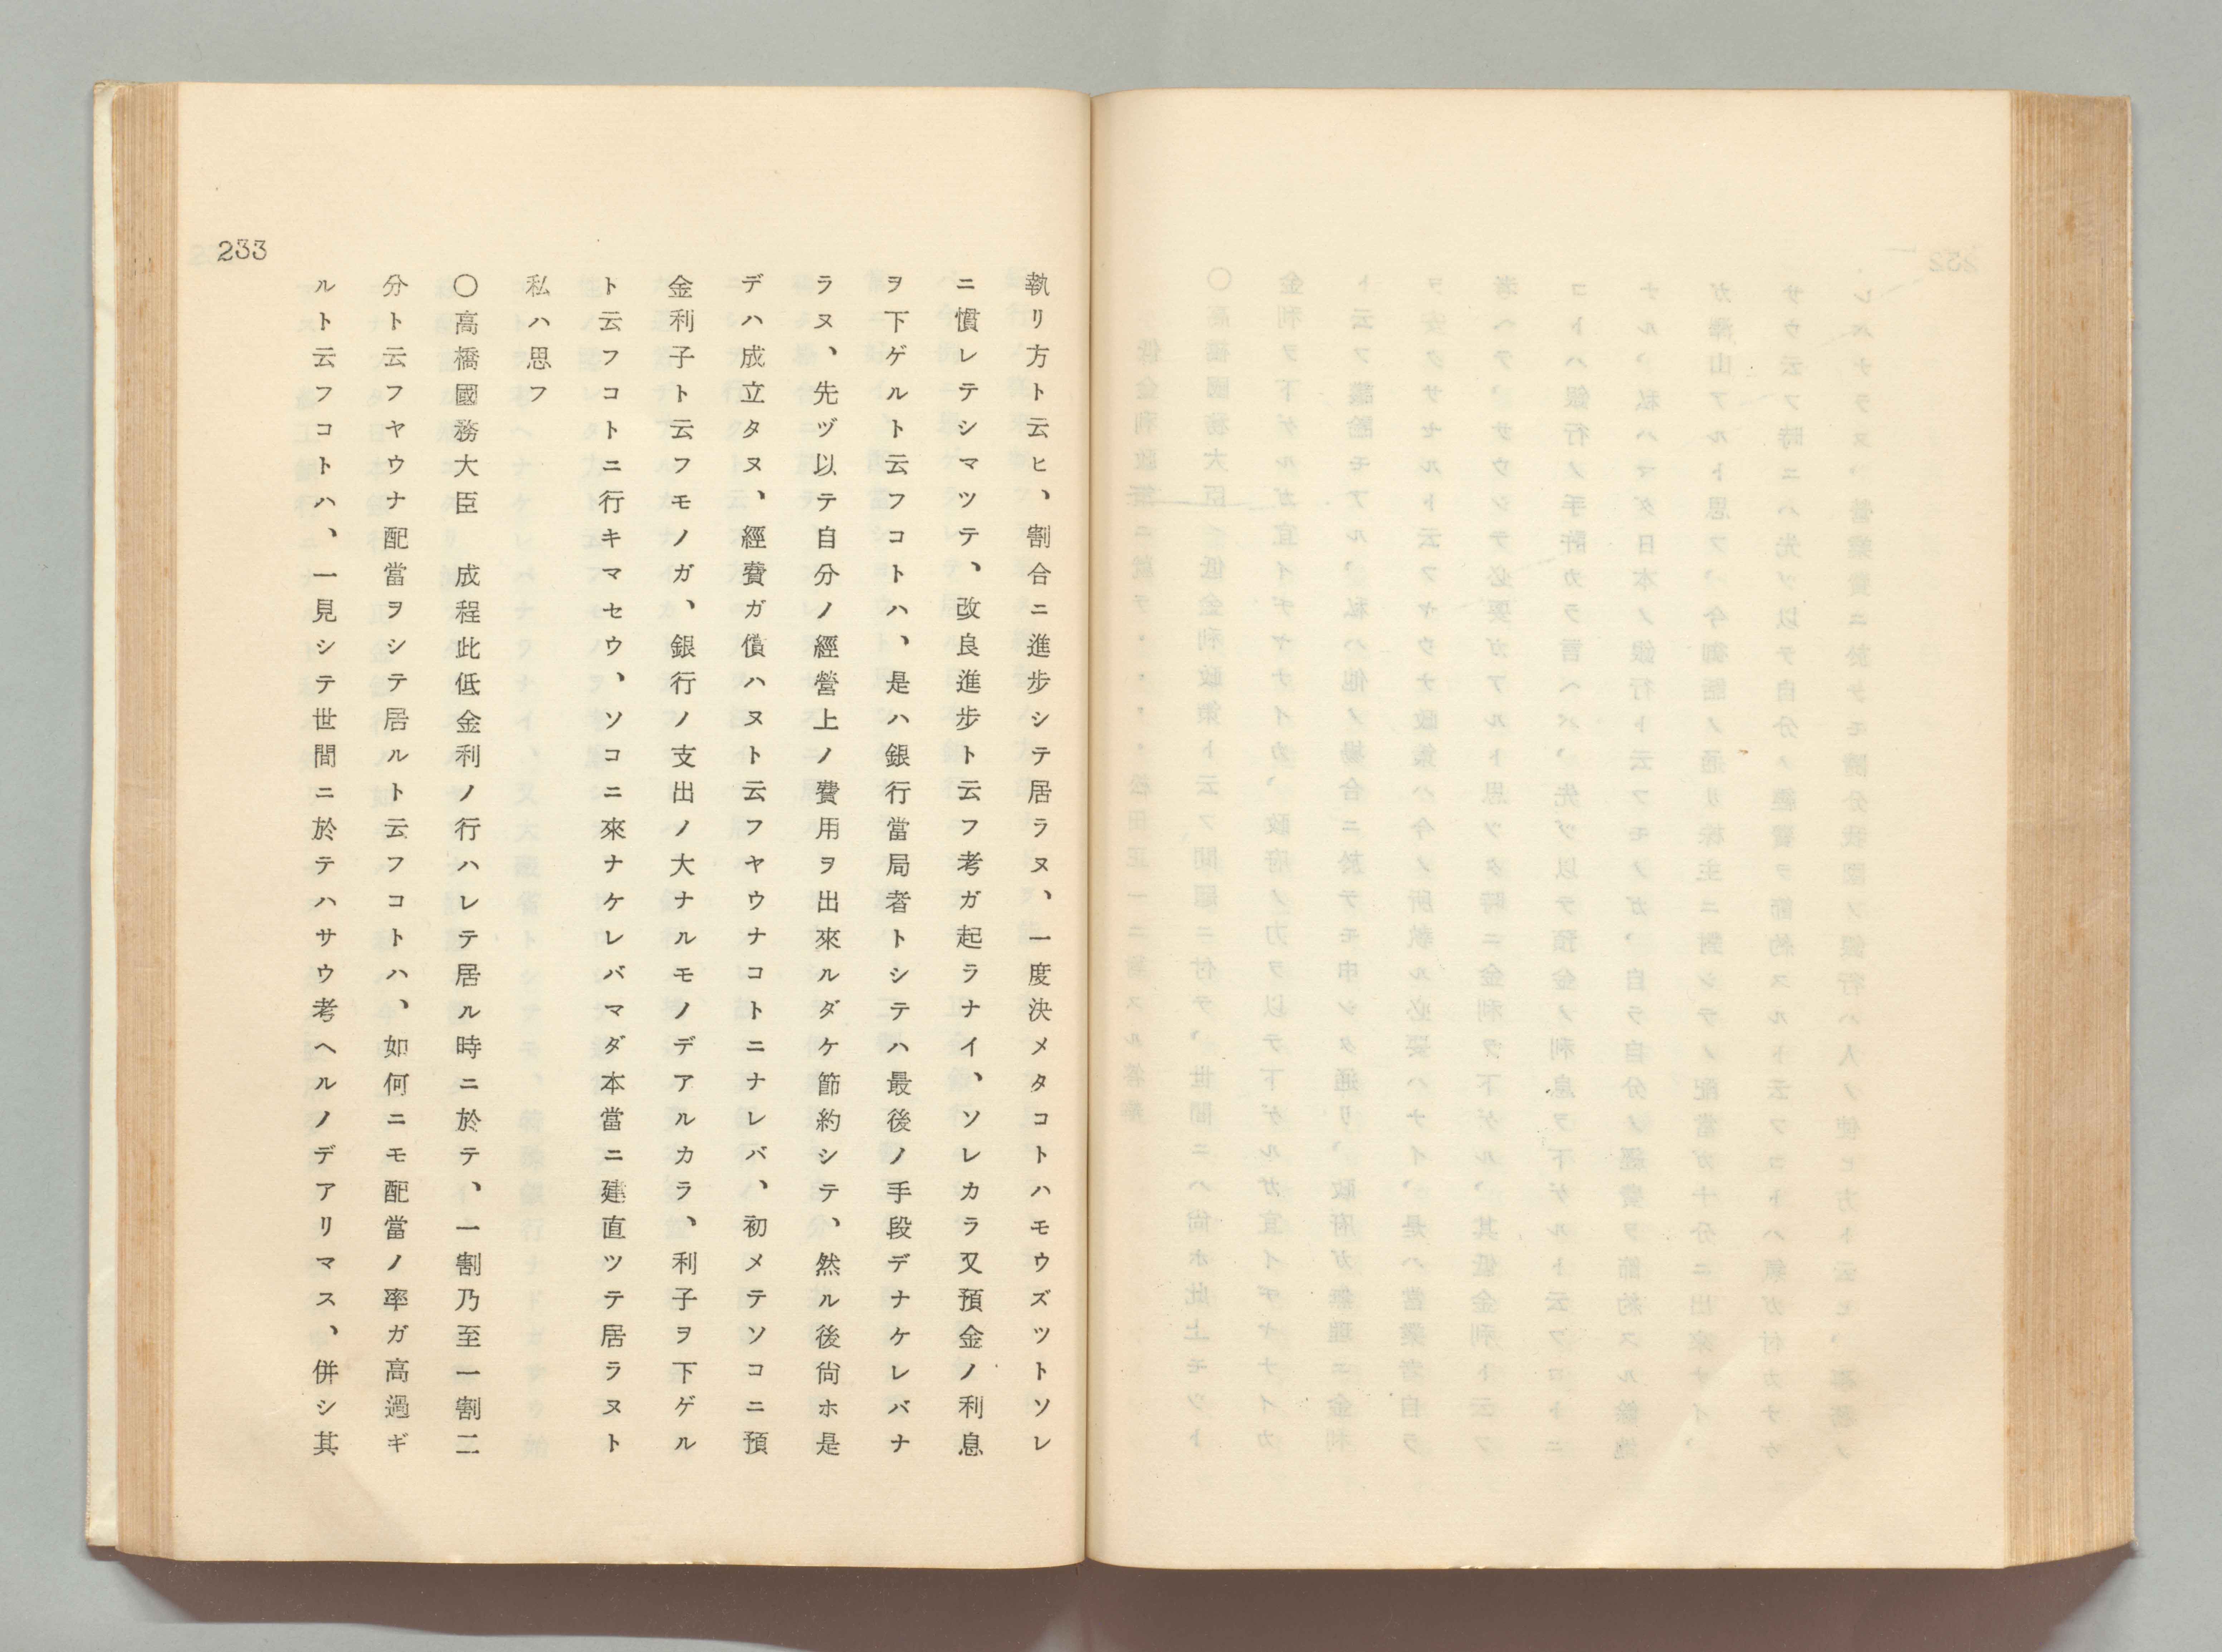 233
執リ方ト云ヒ、割合ニ進步シテ居ラヌ、一度決メタコトハモウズツトソレ
ニ慣レテシマツテ、改良進步ト云フ考ガ起ラナイ、ソレカラ又預金ノ利息
ヲ下ゲルト云フコトハ、是ハ銀行當局者トシテハ最後ノ手段デナケレバナ
ラヌ、先ヅ以テ自分ノ經營上ノ費用ヲ出來ルダケ節約シテ、然ル後尙ホ是
デハ成立タヌ、經費ガ償ハヌト云フヤウナコトニナレバ、初メテソコニ預
金利子ト云フモノガ、銀行ノ支出ノ大ナルモノデアルカラ、利子ヲ下ゲル
ト云フコトニ行キマセウ、ソコニ來ナケレバマダ本當ニ建直ツテ居ラヌト
私ハ思フ
〇高橋國務大臣　成程此低金利ノ行ハレテ居ル時ニ於テ、一割乃至一割二
分ト云フヤウナ配當ヲシテ居ルト云フコトハ、如何ニモ配當ノ率ガ高過ギ
ルト云フコトハ、一見シテ世間ニ於テハサウ考ヘルノデアリマス、併シ其